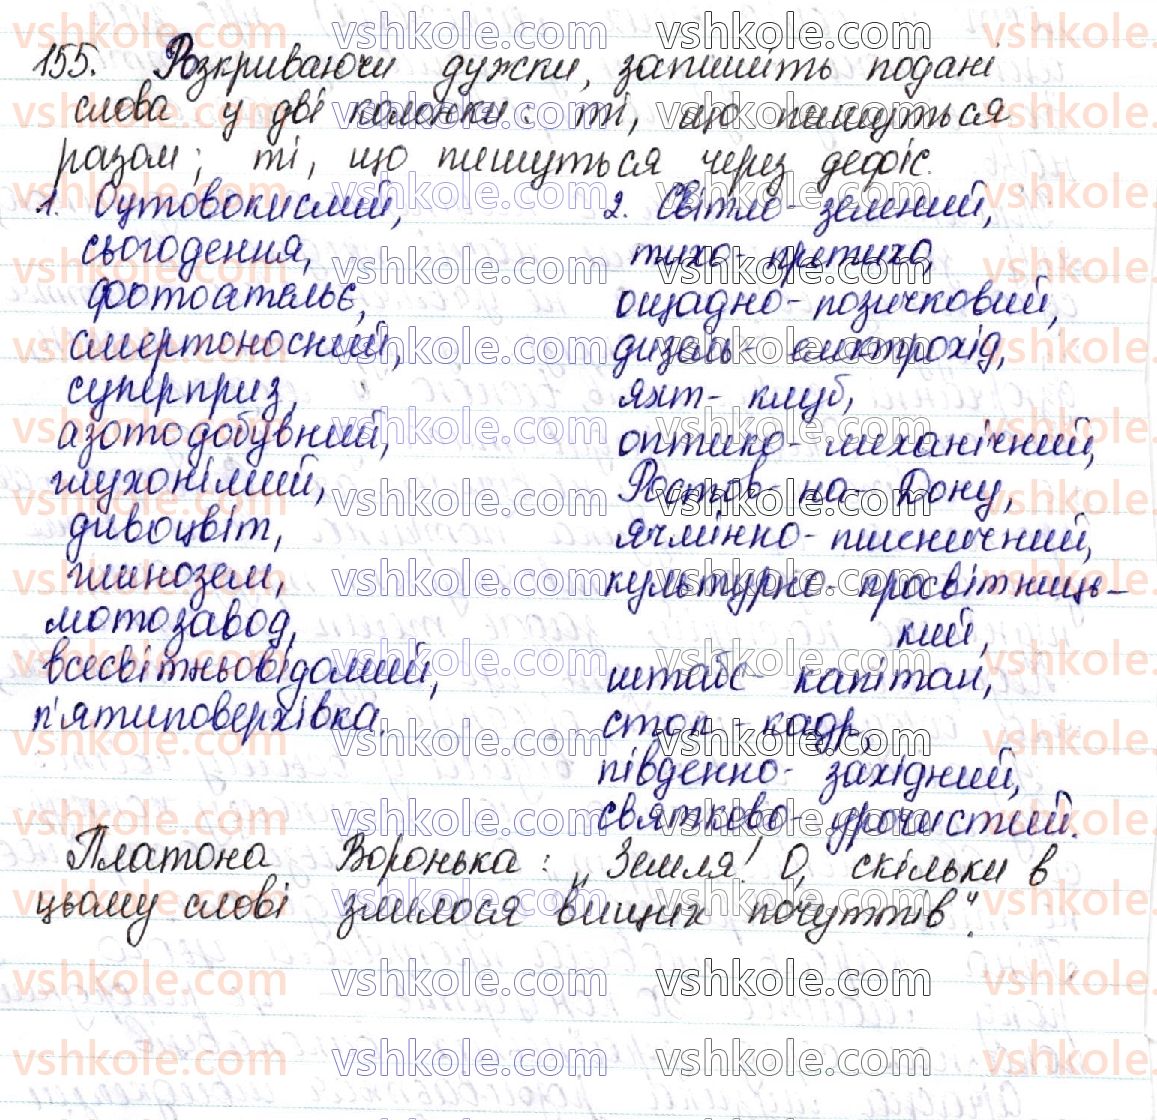 155. Розкриваючи дужки, запишіть подані
слова у дві колонки: ті, що пишуться
разом; ті, що пишуться через дефіс.
1. Оцтовокислий,
сьогодення,
фотоательє,
смертоносний,
суперприз,
азотодобувний,
глухонімий,
дивоцвіт,
глинозем,
мотозавод,
всесвітньовідомий,
п'ятиповерхівка.
2. Світло-зелений,
тихо-претихо,
ощадно-позичковий,
дизель-електрохід,
яхт-клуб,
оптико-механічний,
Ростов-на-Дону,
ячмінно-пшеничний,
культурно-просвітниць-
кий,
штабс-капітан,
стоп-кадр,
південно-західний,
святково-урочистий.
Платона Воронька: „Земля! О, скільки в
цьому слові злилося вищих почуттів".
vshkole.com